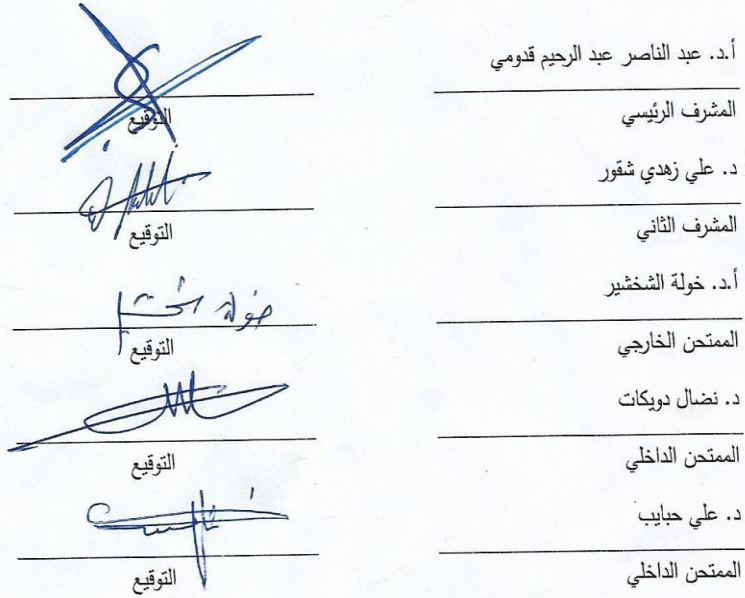 أ.د. عبد الناصر عبد الرحيم قدومي
المشرف الرئيسي
التوقيع
د. علي زهدي شقور
المشرف الثاني
التوقيع
أ.د. خولة الشخشير
خولة
الممتحن الخارجي
التوقيع
د. نضال دويكات
الممتحن الداخلي
التوقيع
د. علي حبايب
الممتحن الداخلي
التوقيع